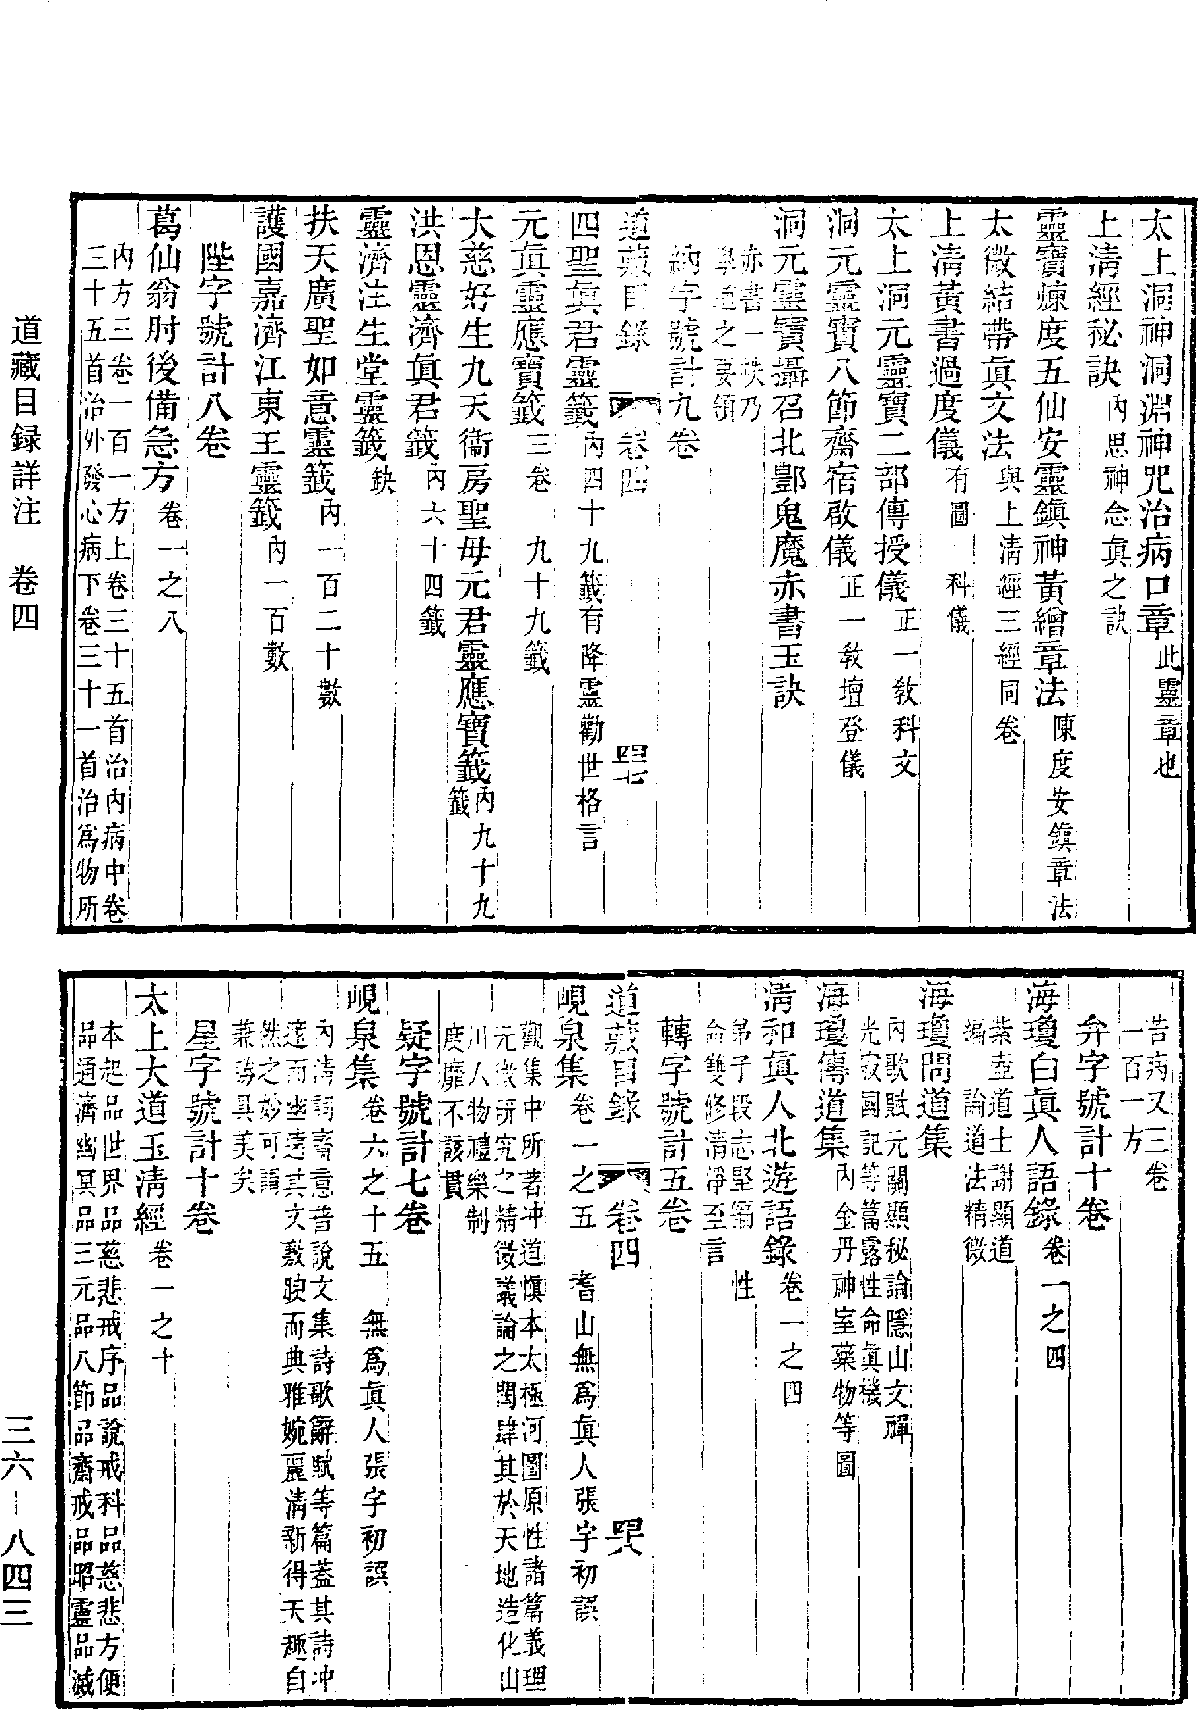 太上洞神洞淵神咒治病口章 此靈章也
上清經秘訣 內思神念眞之訣
靈寶煉度五仙安靈鎮神黃繒章法 陳度安鎮章法
太微結帶眞文法 與上清經三經同卷
上清黃書過度儀 有圖 科儀
太上洞元靈寶二部傳授儀 正一敎科文
洞元靈寶八節齋宿啟儀 正一敎壇登儀
洞元靈寶攝召北酆鬼魔赤書玉訣
赤書一帙乃
之要領
納字號計九卷
道藏目錄 卷四 四七
四聖眞君靈籤 內四十九籤有降靈勸世格言
元眞靈應寶籤 三卷 九十九籤
大慈好生九天衞房聖母元君靈應寶籤 內九十九
籤
洪恩靈濟眞君籤 內六十四籤
靈濟注生堂靈籤 缺
扶天廣聖如意靈籤 內一百二十數
護國嘉濟江東王靈籤 內一百數
陛字號計八卷
葛仙翁肘後備急方 卷一之八
內方三卷一百一方上卷三十五首治內病中卷
三十五首治外發心病下卷三十一首治爲物所
苦病又三卷
一百一方
弁字號計十卷
海瓊白眞人語錄 卷一之四
紫壺道士謝顯道
編 論道法精微
海瓊問道集
內歌賦元關顯秘論隱山文禪
光寂園記等篇露性命眞機
海瓊傳道集 內金丹神室藥物等圖
清和眞人北遊語錄 卷一之四
弟子段志堅編 性
命雙修清淨至言
轉字號計五卷
道藏目錄 卷四 四八
峴泉集 卷一之五 耆山無爲眞人張字初譔
觀集中所著冲道愼本太極河圖原性諸篇義理
元微研究之精微議論之閎肆其於天地造化山
川人物禮樂制
度靡不該貫
疑字號計七卷
峴泉集 卷六之十五 無爲眞人張字初譔
內清詞齋意普說文集詩歌辭賦等篇蓋其詩冲
邃而幽遠其文敷腴而典雅婉麗清新得天趣自
然之妙可謂
兼備具美矣
星字號計十卷
太上大道玉清經 卷一之十
本起品世界品慈悲戒序品說戒科品慈悲方便
品通濟幽冥品三元品八節品齋戒品昭靈品滅
道藏目録詳注 卷四
三六-八四三